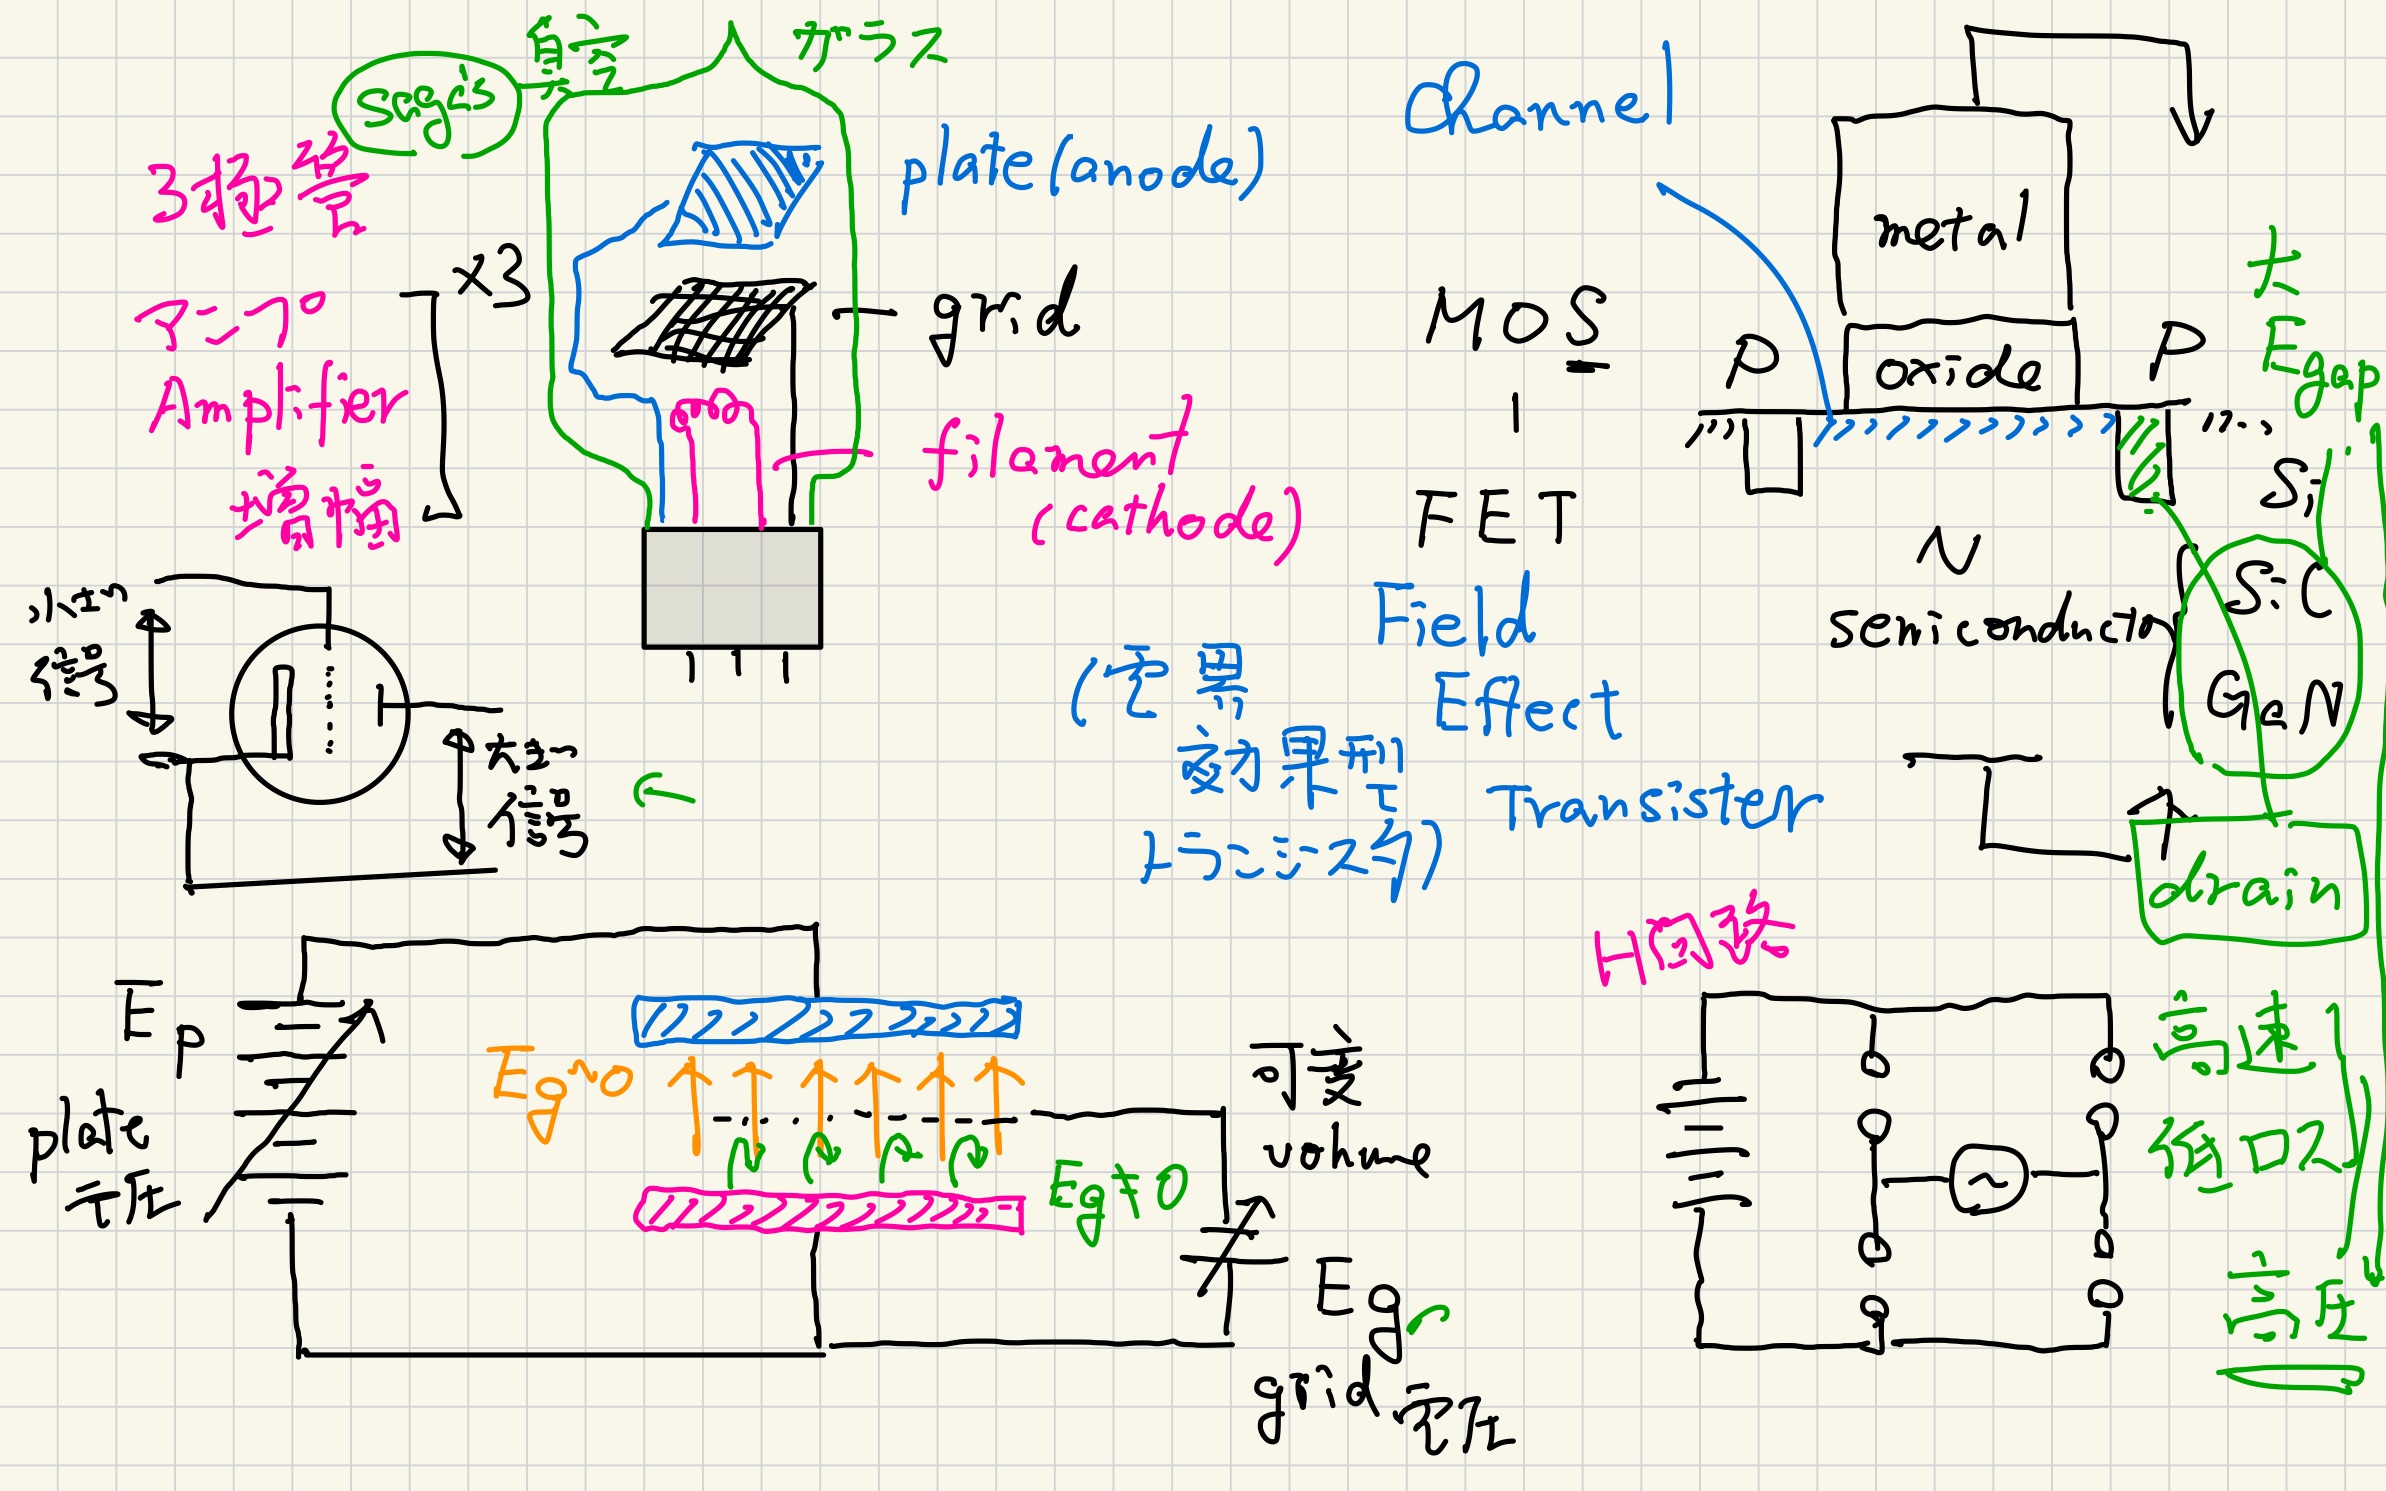 真空
ガラス
3極管
×3
アンプ
Amplifier
増幅
plate(anode)
grid
filament
(cathode)
小さい
信号
大きい
信号
Ep
plate
電圧
Eg~0
Eg≠0
可変
volume
Eg
grid 電圧
Channel
MOS
FET
Field
Effect
Transister
(電界
効果型
トランジスタ)
metal
oxide
P
P
N
semiconductor
大
Egap
Si
SiC
GaN
drain
H回路
高速
低ロス
高圧